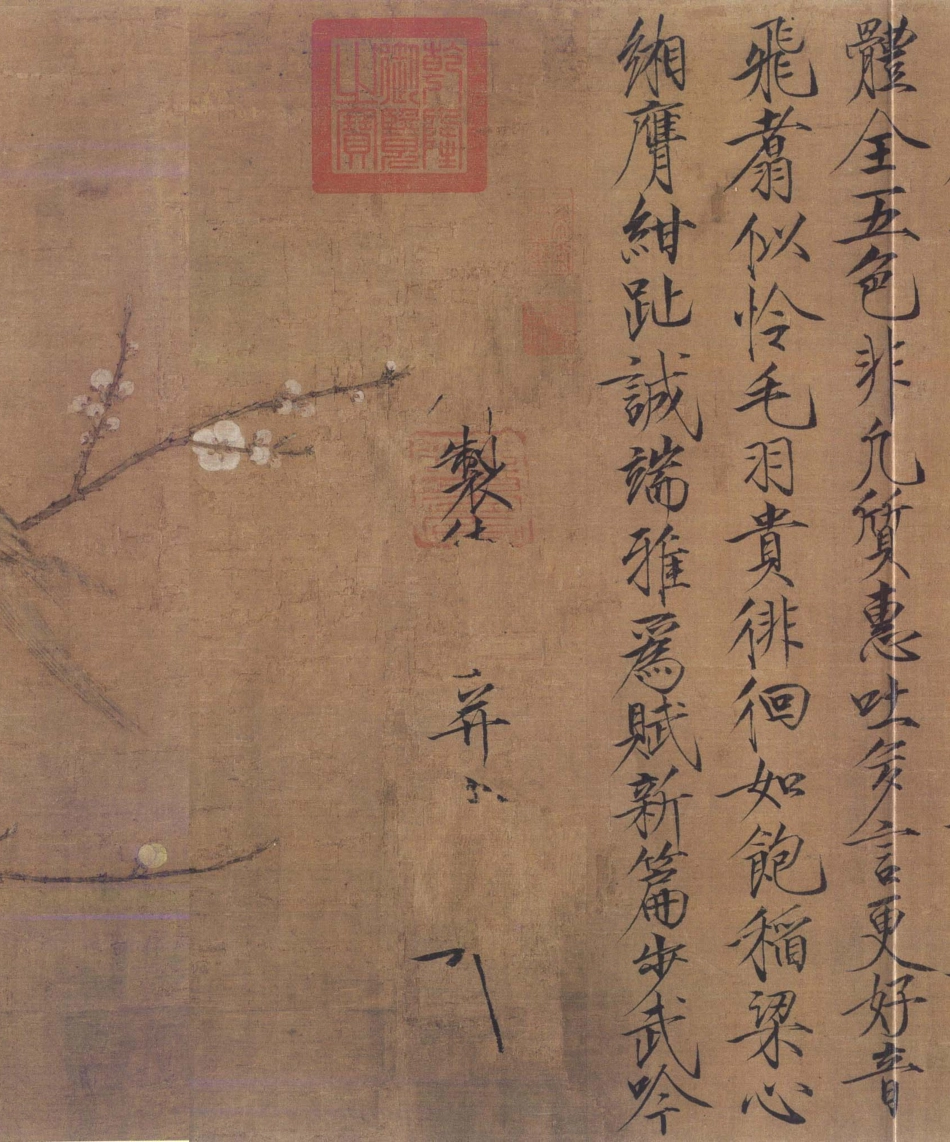 體全五色非凡質惠吐多言更好音
飛翥似憐毛羽貴徘徊如飽稻粱心
緗膺紺趾誠端雅為賦新篇步武吟
製
乾隆御覽之寶